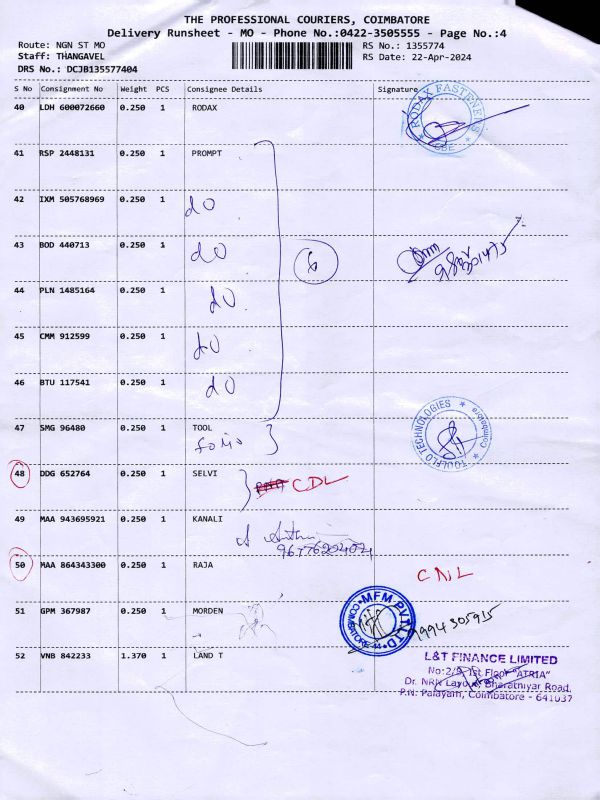 THE PROFESSIONAL COURIERS, COIMBATORE
Delivery Runsheet - MO - Phone No.:0422-3505555 - Page No.:4
Route: NGN ST MO
Staff: THANGAVEL
DRS No.: DCJB135577404
RS No.: 1355774
RS Date: 22-Apr-2024
S No Consignment No Weight PCS Consignee Details Signature
40 LDH 600072660 0.250 1 RODAX
RODAX FASTENERS CBE
41 RSP 2448131 0.250 1 PROMPT
42 IXM 505768969 0.250 1 do
43 BOD 440713 0.250 1 do
6
44 PLN 1485164 0.250 1 do
45 CMM 912599 0.250 1 do
46 BTU 117541 0.250 1 do
47 SMG 96480 0.250 1 TOOL
TOULFLO TECHNOLOGIES * Coimbatore *
48 DDG 652764 0.250 1 SELVI
CDL
49 MAA 943695921 0.250 1 KANALI
50 MAA 864343300 0.250 1 RAJA
CNL
51 GPM 367987 0.250 1 MORDEN
MFM PVT LTD COIMBATORE-44
9994305915
52 VNB 842233 1.370 1 LAND T
L&T FINANCE LIMITED
No:2/9 1st Floor "ATRIA"
Dr. NRN Layout, Bharathiyar Road,
P.N. Palayam, Coimbatore - 641037